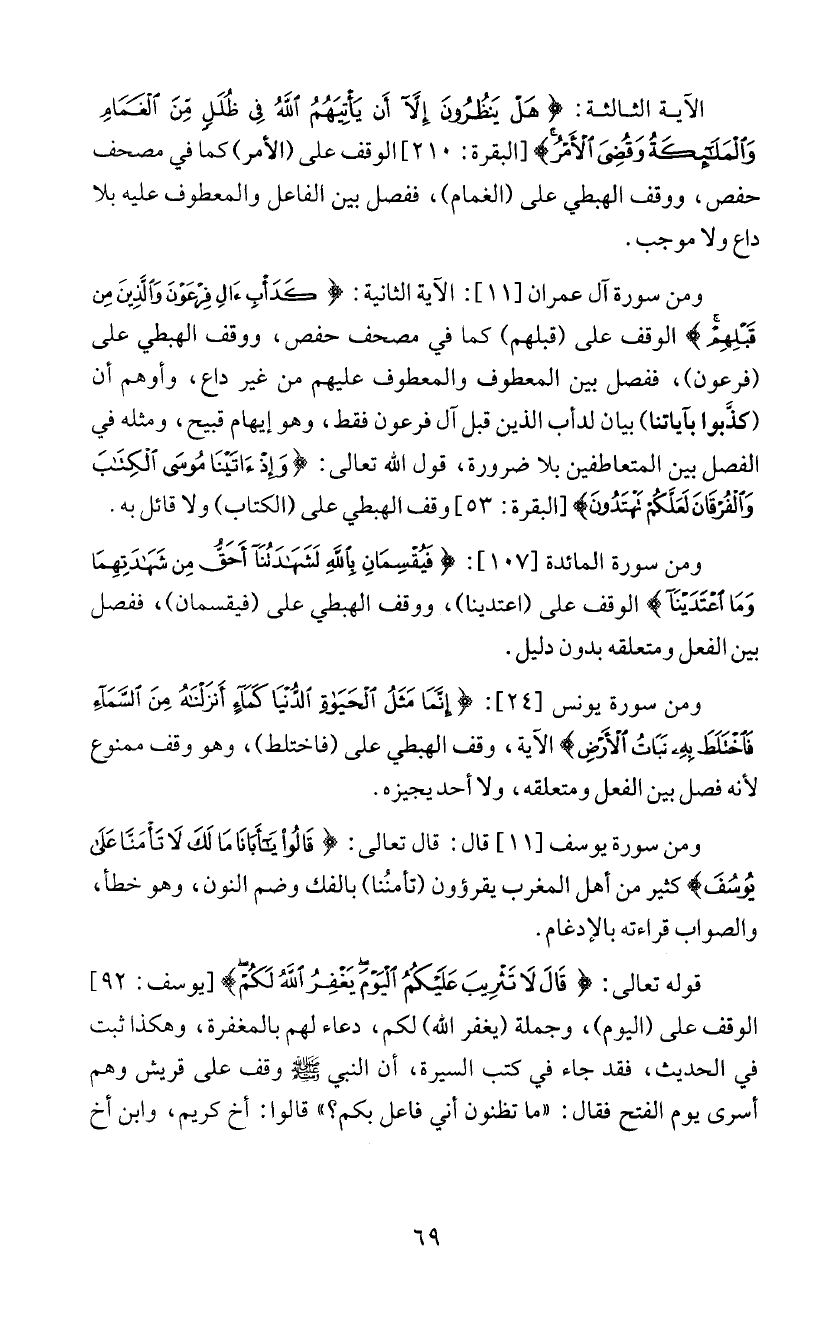 الآية الثالثة: ﴿ هَلْ يَنظُرُونَ إِلَّآ أَن يَأْتِيَهُمُ ٱللَّهُ فِى ظُلَلٍ مِّنَ ٱلْغَمَامِ
وَٱلْمَلَٰٓئِكَةُ وَقُضِىَ ٱلْأَمْرُ ۚ﴾ [البقرة: ٢١٠] الوقف على (الأمر) كما في مصحف
حفص، ووقف الهبطي على (الغمام)، ففصل بين الفاعل والمعطوف عليه بلا
داع ولا موجب.
ومن سورة آل عمران [١١]: الآية الثانية: ﴿ كَدَأْبِ ءَالِ فِرْعَوْنَ وَٱلَّذِينَ مِن
قَبْلِهِمْ ۚ ﴾ الوقف على (قبلهم) كما في مصحف حفص، ووقف الهبطي على
(فرعون)، ففصل بين المعطوف والمعطوف عليهم من غير داع، وأوهم أن
(كذَّبوا بآياتنا) بيان لدأب الذين قبل آل فرعون فقط، وهو إيهام قبيح، ومثله في
الفصل بين المتعاطفين بلا ضرورة، قول الله تعالى: ﴿ وَإِذْ ءَاتَيْنَا مُوسَى ٱلْكِتَٰبَ
وَٱلْفُرْقَانَ لَعَلَّكُمْ تَهْتَدُونَ﴾ [البقرة: ٥٣] وقف الهبطي على (الكتاب) ولا قائل به.
ومن سورة المائدة [١٠٧]: ﴿ فَيُقْسِمَانِ بِٱللَّهِ لَشَهَٰدَتُنَآ أَحَقُّ مِن شَهَٰدَتِهِمَا
وَمَا ٱعْتَدَيْنَآ ﴾ الوقف على (اعتدينا)، ووقف الهبطي على (فيقسمان)، ففصل
بين الفعل ومتعلقه بدون دليل.
ومن سورة يونس [٢٤]: ﴿ إِنَّمَا مَثَلُ ٱلْحَيَوٰةِ ٱلدُّنْيَا كَمَآءٍ أَنزَلْنَٰهُ مِنَ ٱلسَّمَآءِ
فَٱخْتَلَطَ بِهِۦ نَبَاتُ ٱلْأَرْضِ﴾ الآية، وقف الهبطي على (فاختلط)، وهو وقف ممنوع
لأنه فصل بين الفعل ومتعلقه، ولا أحد يجيزه.
ومن سورة يوسف [١١] قال: قال تعالى: ﴿ قَالُوا۟ يَٰٓأَبَانَا مَا لَكَ لَا تَأْمَ۫نَّا عَلَىٰ
يُوسُفَ﴾ كثير من أهل المغرب يقرؤون (تأمنُنا) بالفك وضم النون، وهو خطأ،
والصواب قراءته بالإدغام.
قوله تعالى: ﴿ قَالَ لَا تَثْرِيبَ عَلَيْكُمُ ٱلْيَوْمَ ۖ يَغْفِرُ ٱللَّهُ لَكُمْ ۖ﴾ [يوسف: ٩٢]
الوقف على (اليوم)، وجملة (يغفر الله) لكم، دعاء لهم بالمغفرة، وهكذا ثبت
في الحديث، فقد جاء في كتب السيرة، أن النبي ﷺ وقف على قريش وهم
أسرى يوم الفتح فقال: «ما تظنون أني فاعل بكم؟» قالوا: أخ كريم، وابن أخ
٦٩